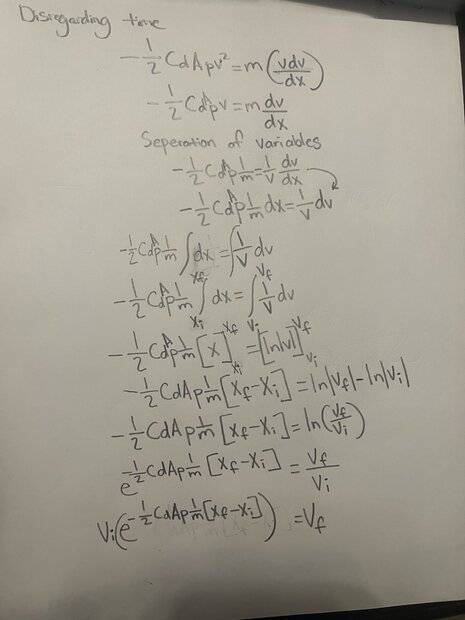 Disregarding time
-1/2 CdApv² = m(vdv/dx)
-1/2 CdApv = m dv/dx
Seperation of variables
-1/2 CdAp 1/m = 1/v dv/dx
-1/2 CdAp 1/m dx = 1/v dv
-1/2 CdAp 1/m ∫dx = ∫1/v dv
-1/2 CdAp 1/m ∫_{xi}^{xf} dx = ∫_{vi}^{vf} 1/v dv
-1/2 CdAp 1/m [x]_{xi}^{xf} = [ln|v|]_{vi}^{vf}
-1/2 CdAp 1/m [xf-xi] = ln|vf|-ln|vi|
-1/2 CdAp 1/m [xf-xi] = ln(vf/vi)
e^{-1/2 CdAp 1/m [xf-xi]} = vf/vi
vi(e^{-1/2 CdAp 1/m [xf-xi]}) = vf